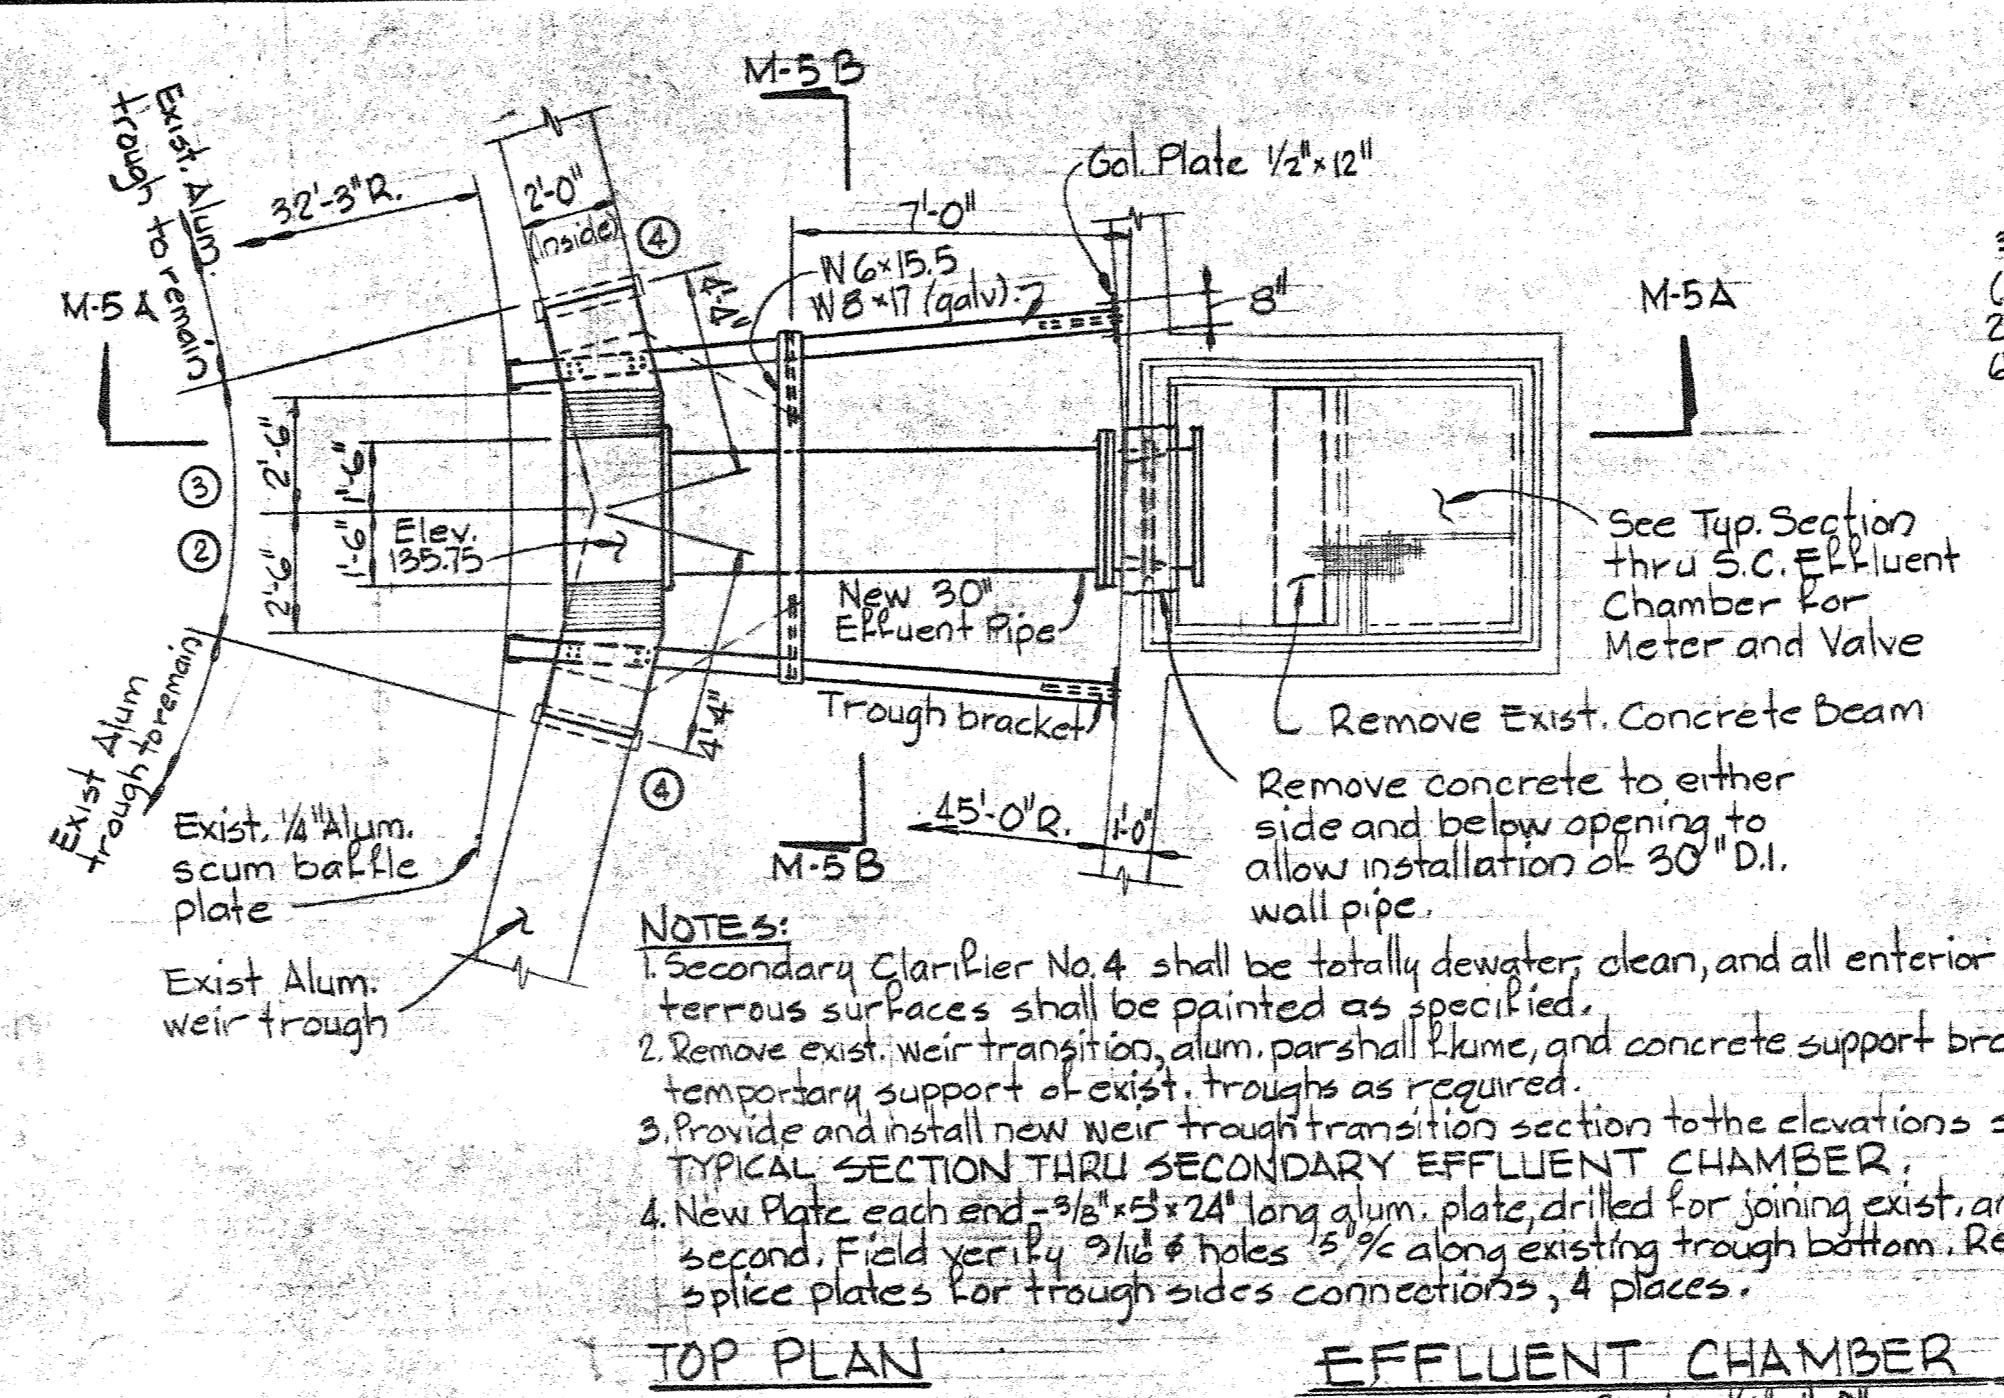 M-5B
Exist. Alum.
trough to remain
32'-3"R.
2'-0"
(inside)
4
7'-0"
Gal. Plate 1/2"×12"
W6×15.5
W8×17 (galv).
8"
4'-4"
M-5A
M-5A
2'-6"
1'-6"
3
2
1'-6"
2'-6"
Elev.
135.75
New 30"
Effuent Pipe
See Typ. Section
thru S.C. Effluent
Chamber for
Meter and Valve
Trough bracket
4'-4"
4
Remove Exist. Concrete Beam
Exist Alum
trough to remain
Remove concrete to either
side and below opening to
allow installation of 30" D.I.
wall pipe.
45'-0"R.
1'-0"
M-5B
Exist. 1/4" Alum.
scum baffle
plate
Exist Alum.
weir trough
NOTES:
1. Secondary Clarifier No. 4 shall be totally dewater, clean, and all enterior
terrous surfaces shall be painted as specified.
2. Remove exist. weir transition, alum. parshall flume, and concrete support bra
temportary support of exist. troughs as required.
3. Provide and install new weir trough transition section to the elevations s
TYPICAL SECTION THRU SECONDARY EFFLUENT CHAMBER.
4. New Plate each end - 3/8"×5"×24" long alum. plate, drilled for joining exist. an
second. Field verify 9/16" ϕ holes 5" o/c along existing trough bottom. Re
splice plates for trough sides connections, 4 places.
TOP PLAN
EFFLUENT CHAMBER